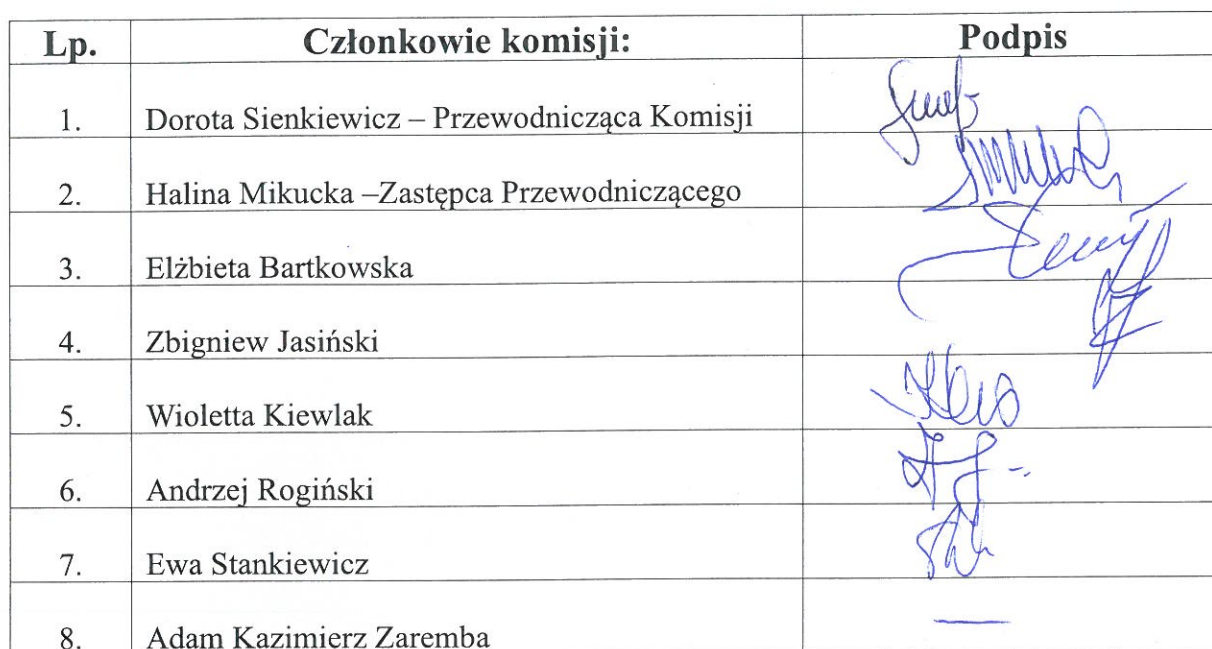 Lp. Członkowie komisji: Podpis
1. Dorota Sienkiewicz – Przewodnicząca Komisji
2. Halina Mikucka –Zastępca Przewodniczącego
3. Elżbieta Bartkowska
4. Zbigniew Jasiński
5. Wioletta Kiewlak
6. Andrzej Rogiński
7. Ewa Stankiewicz
8. Adam Kazimierz Zaremba